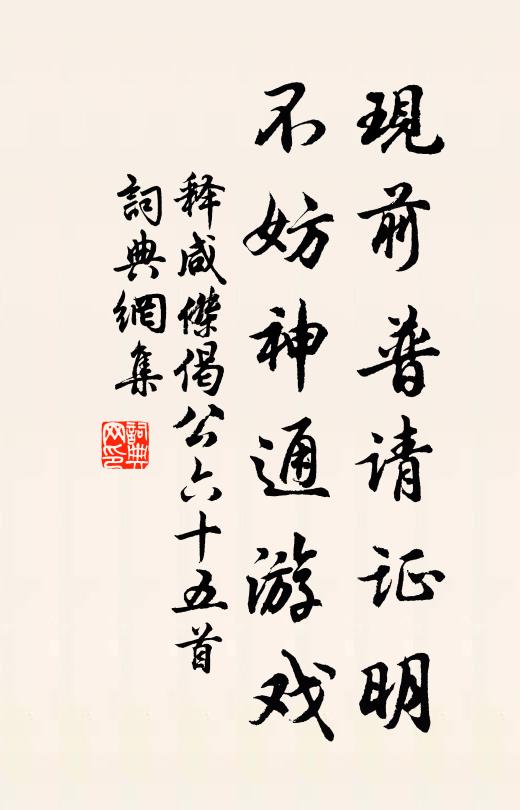 現前普请证明
不妨神通游戏
释咸傑偈公六十五首
詞典網集
詞典
网印